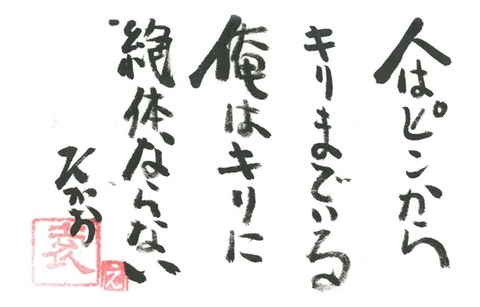 人はピンから
キリまでいる
俺はキリに
絶体ならない
ひかお
え